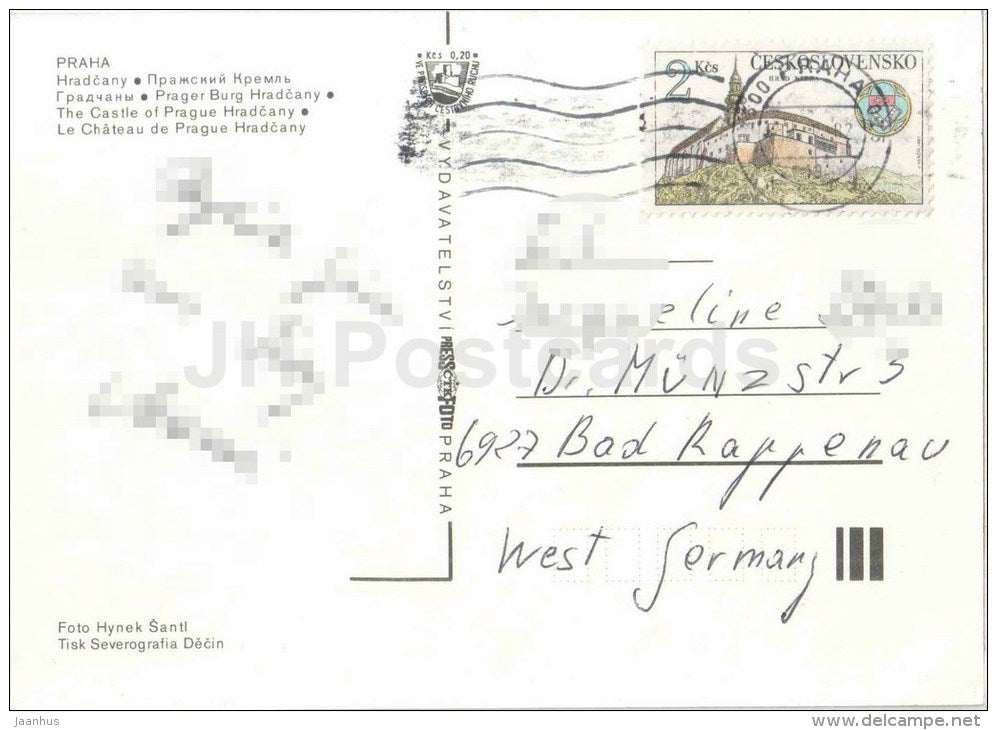 PRAHA
Hradčany ● Пражский Кремль
Градчаны ● Prager Burg Hradčany ●
The Castle of Prague Hradčany ●
Le Château de Prague Hradčany
Kčs 0,20
2 Kčs ČESKOSLOVENSKO
PRAHA
VYDAVATELSTVÍ PRESSFOTO PRAHA
eline
Dr. Münzstr 3
6927 Bad Rappenau
West Germany
Foto Hynek Šantl
Tisk Severografia Děčín
JK Postcards
Jaanhus
www.delcampe.net